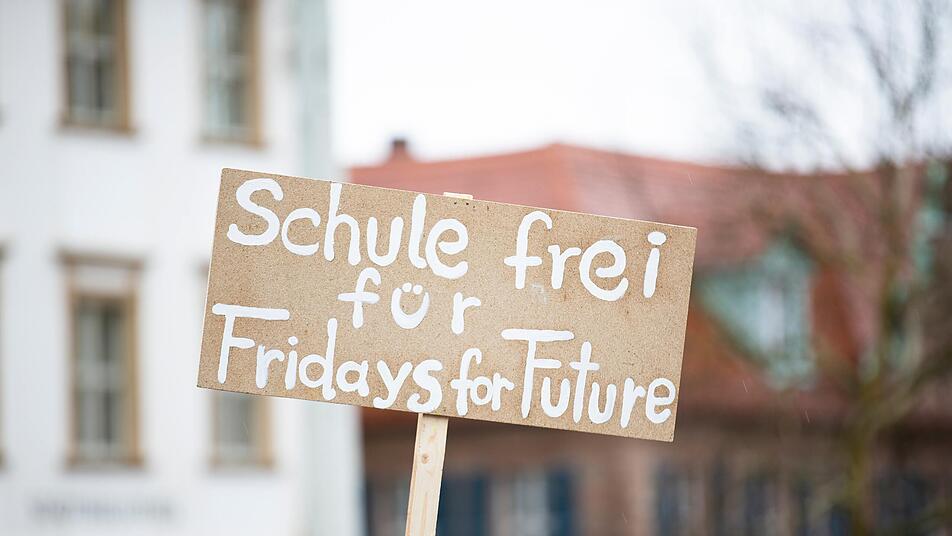 Schule frei
für
Fridays for Future